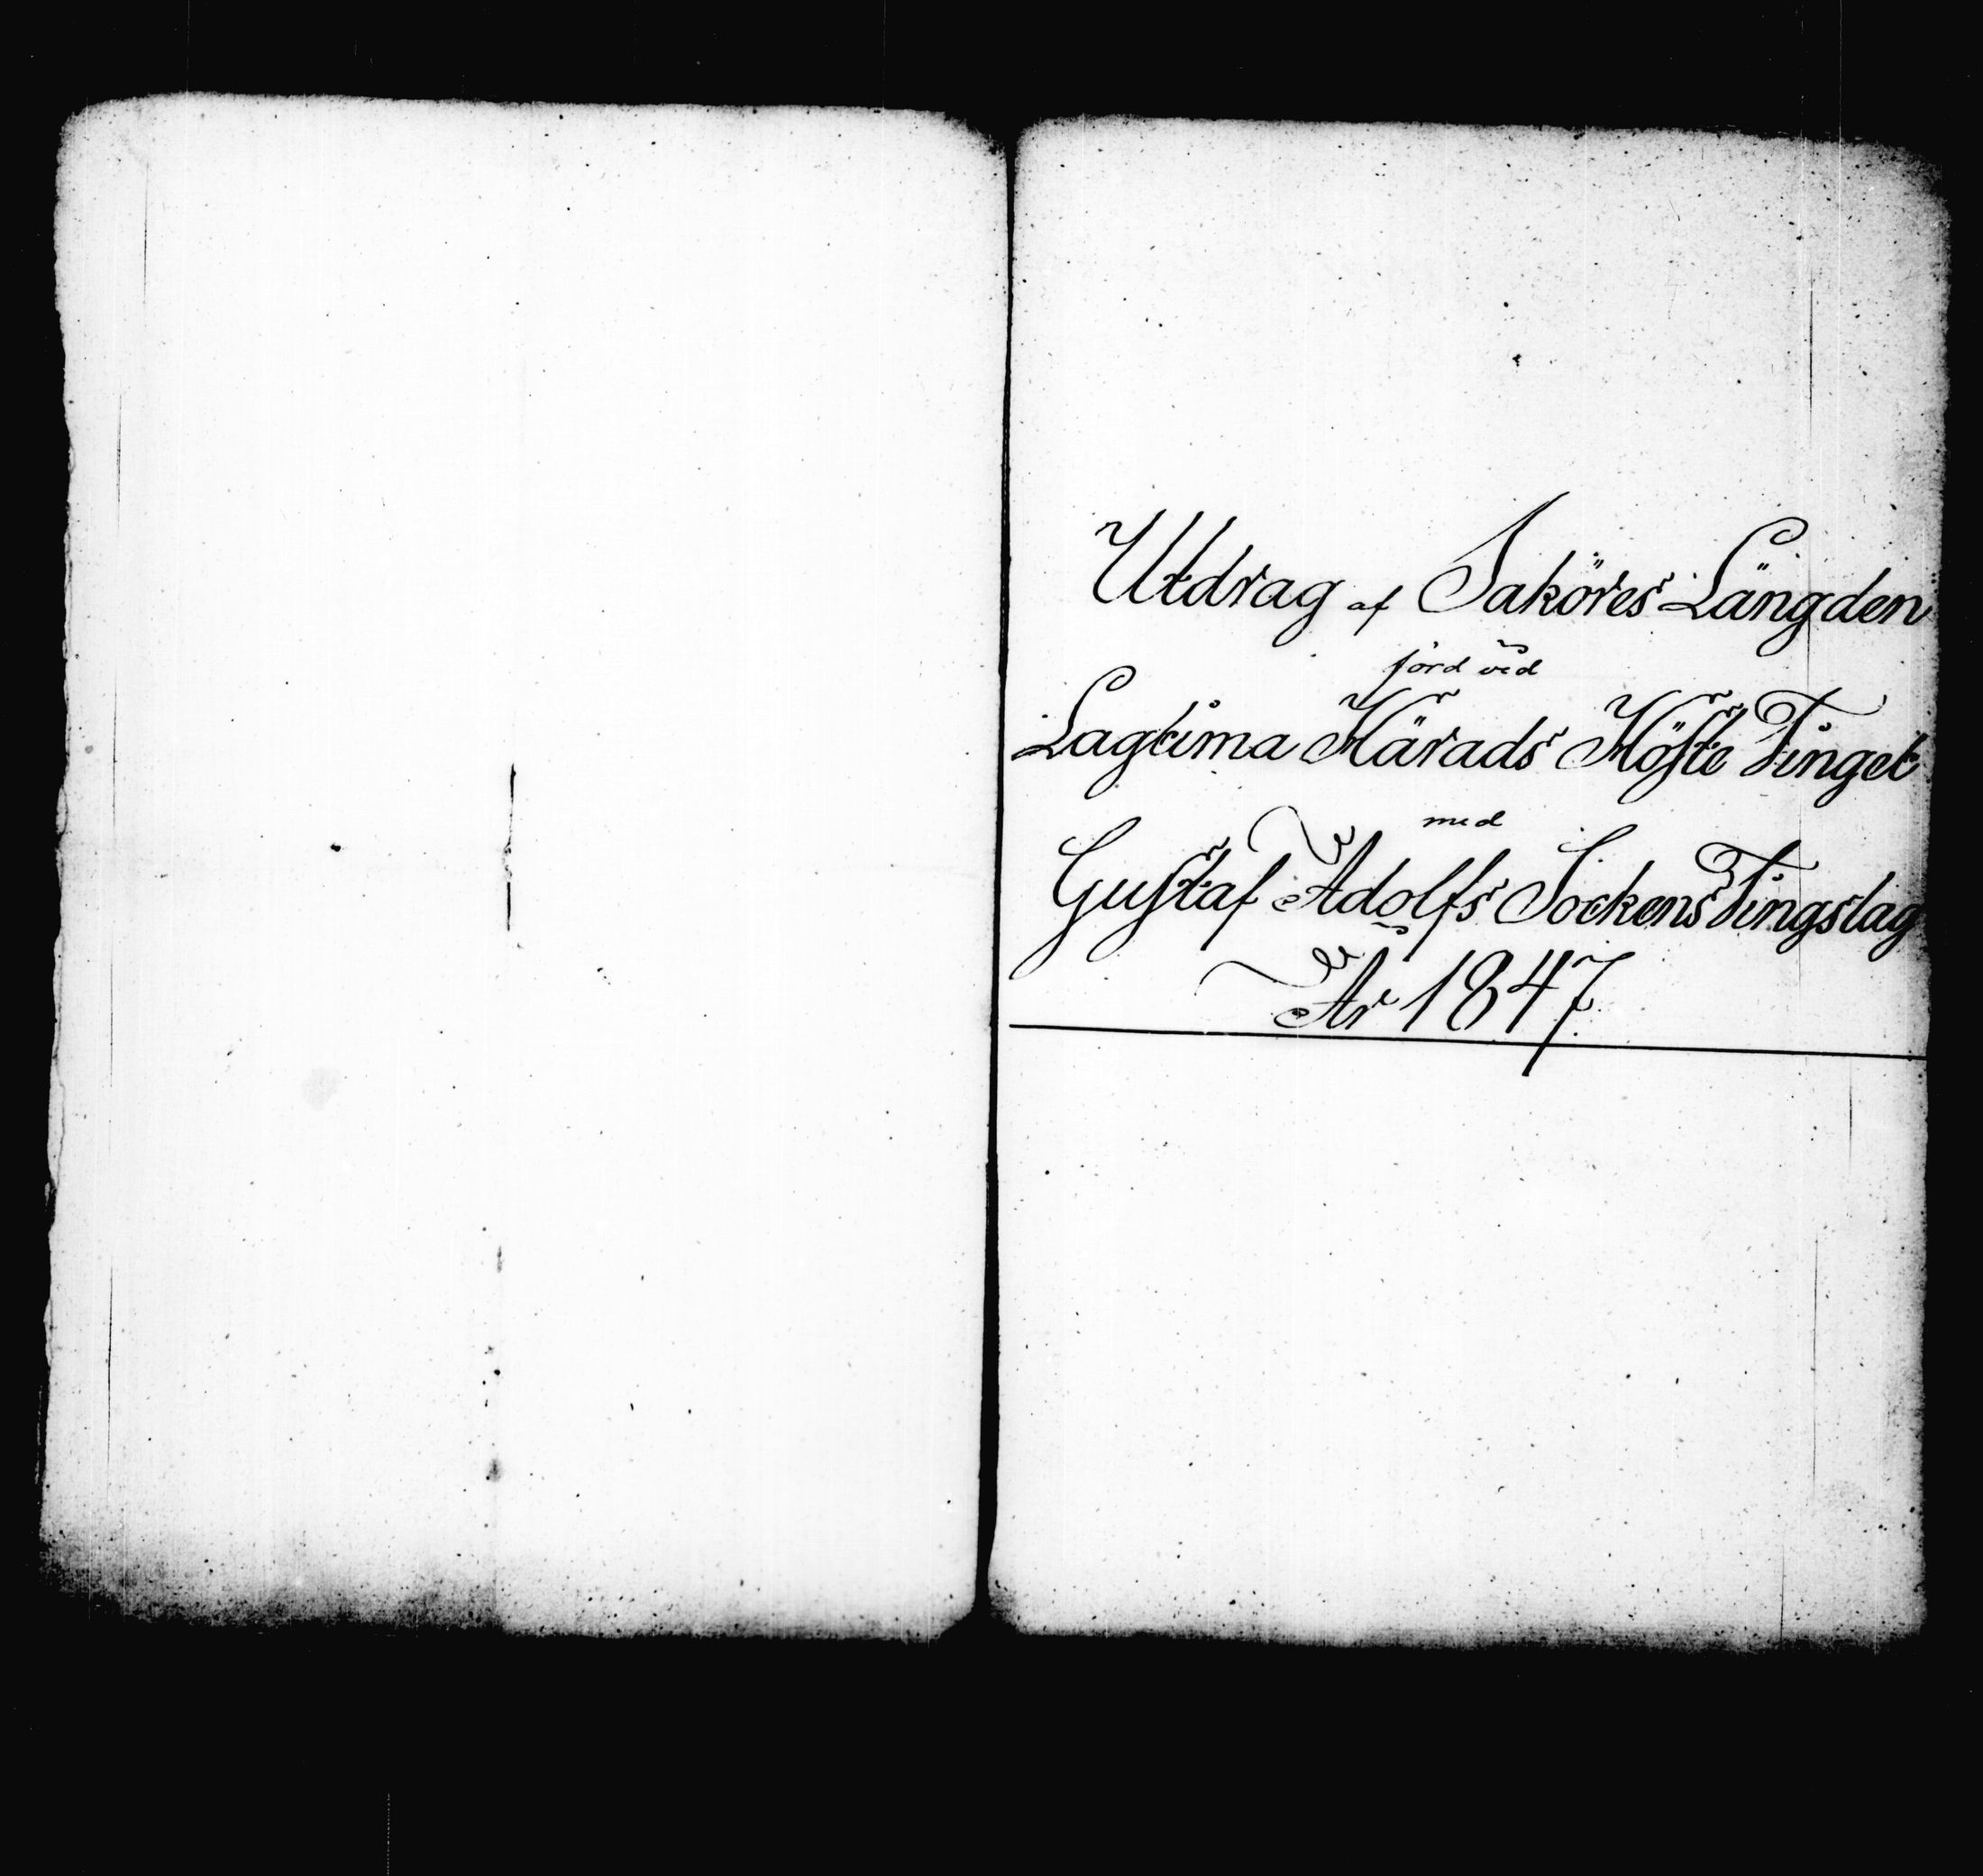 Utdrag af Saköres Längden
förd vid
Lagtima Härads Höste Tinget
med
Gustaf Adolfs Sockens Tingslag
År 1847